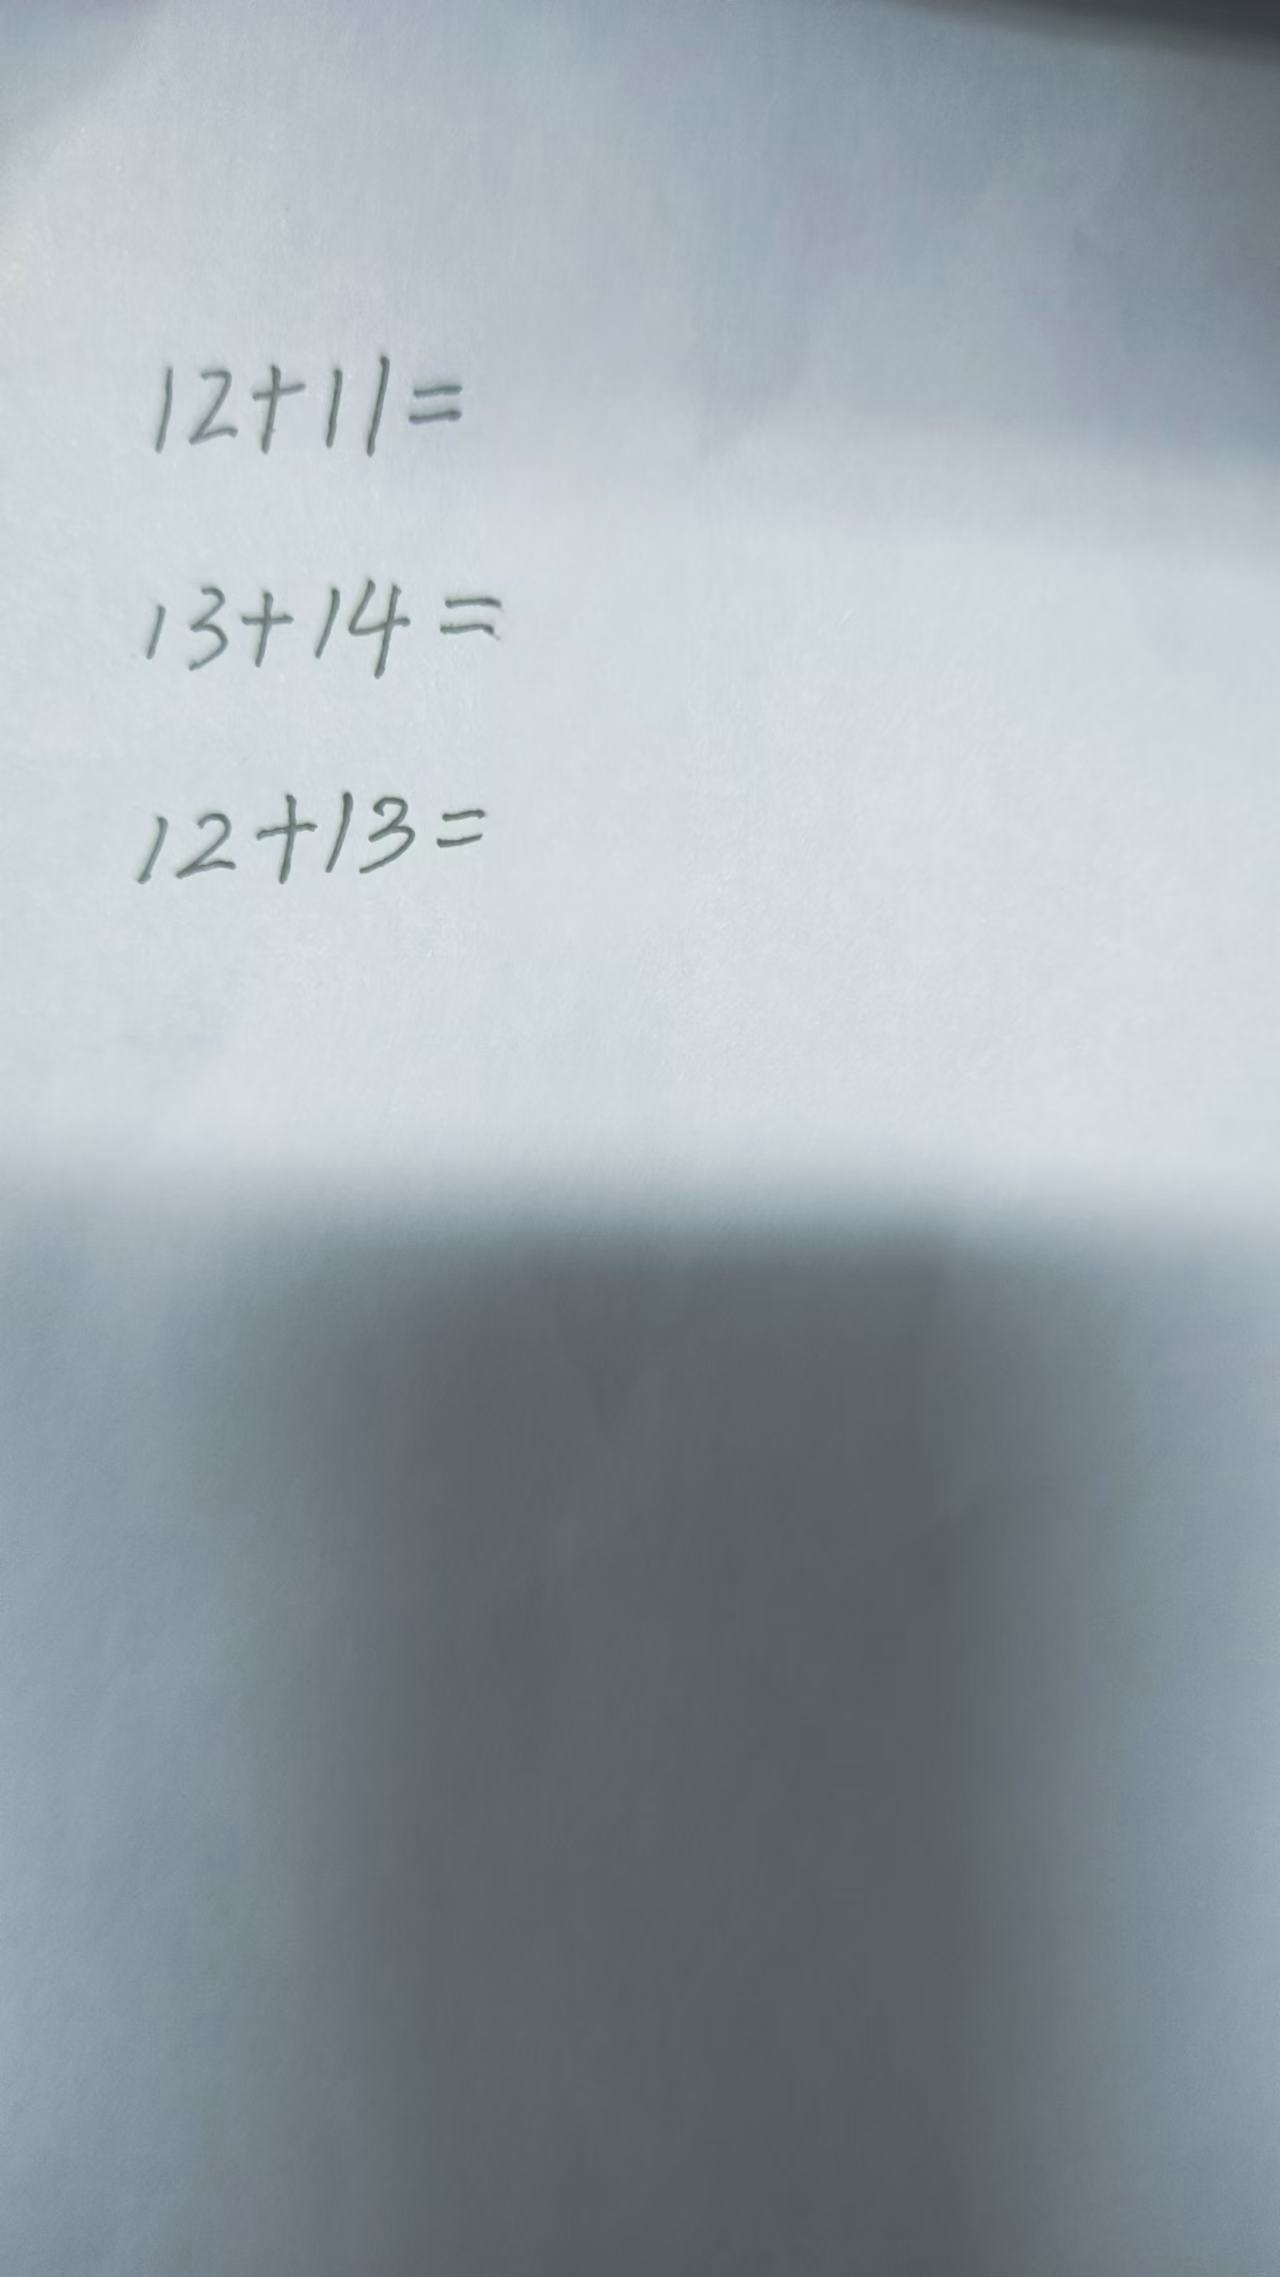 12+11=
13+14=
12+13=